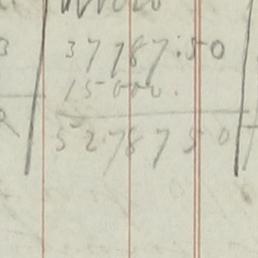 37787.50
15000.
52787 50